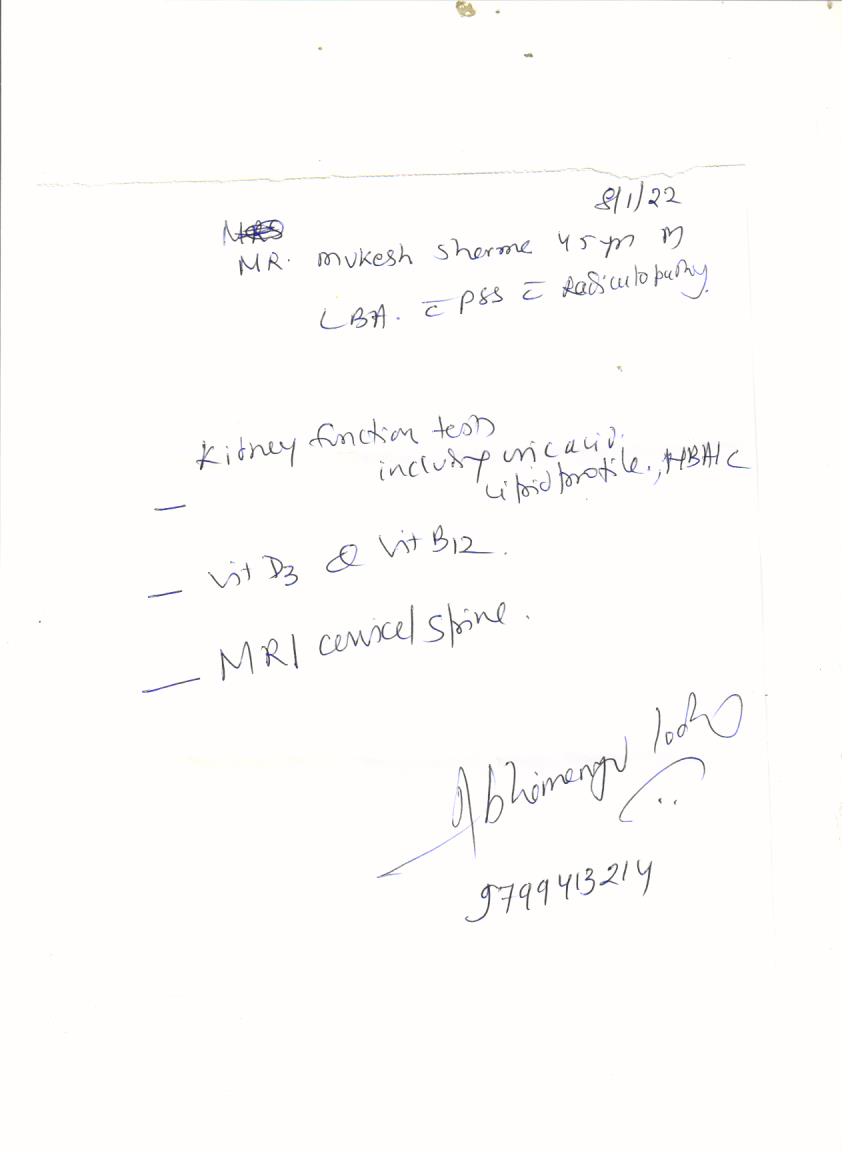 8/1/22
MR. Mukesh Sharma 45 yr M
LBA. c̄ PSS c̄ Radiculopathy.
Kidney function tests
including uric acid.
Lipid profile., HBA1C
— Vit D3 & Vit B12.
— MRI cervical spine.
Abhimanyu
9799413214